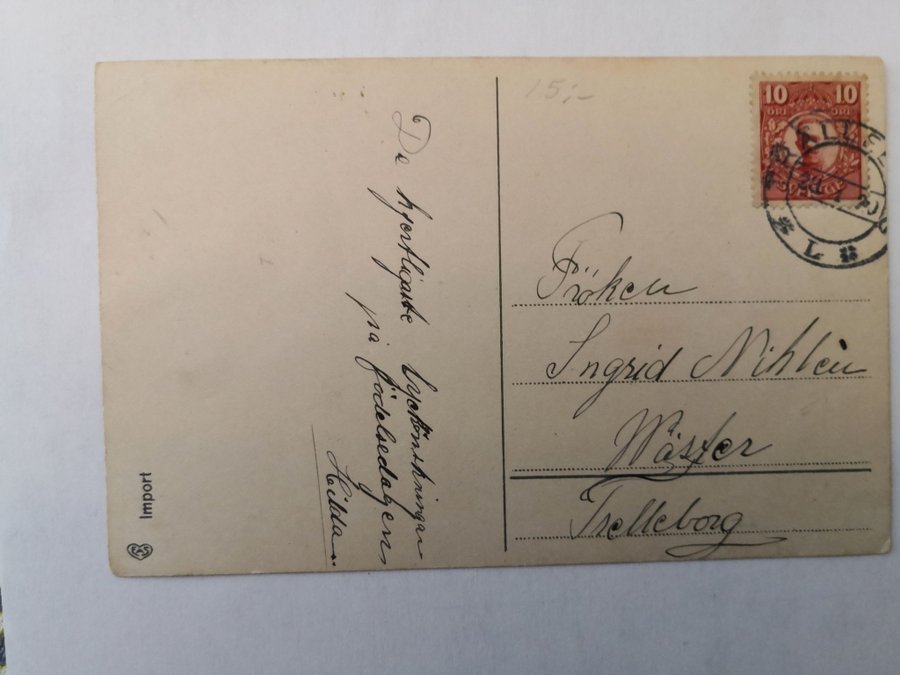 De hjertligaste lyckönskningar
på födelsedagen
Hilda.
15:-
10 10
ÖRE ÖRE
Fröken
Ingrid Nihlén
Wäster
Trelleborg
Import